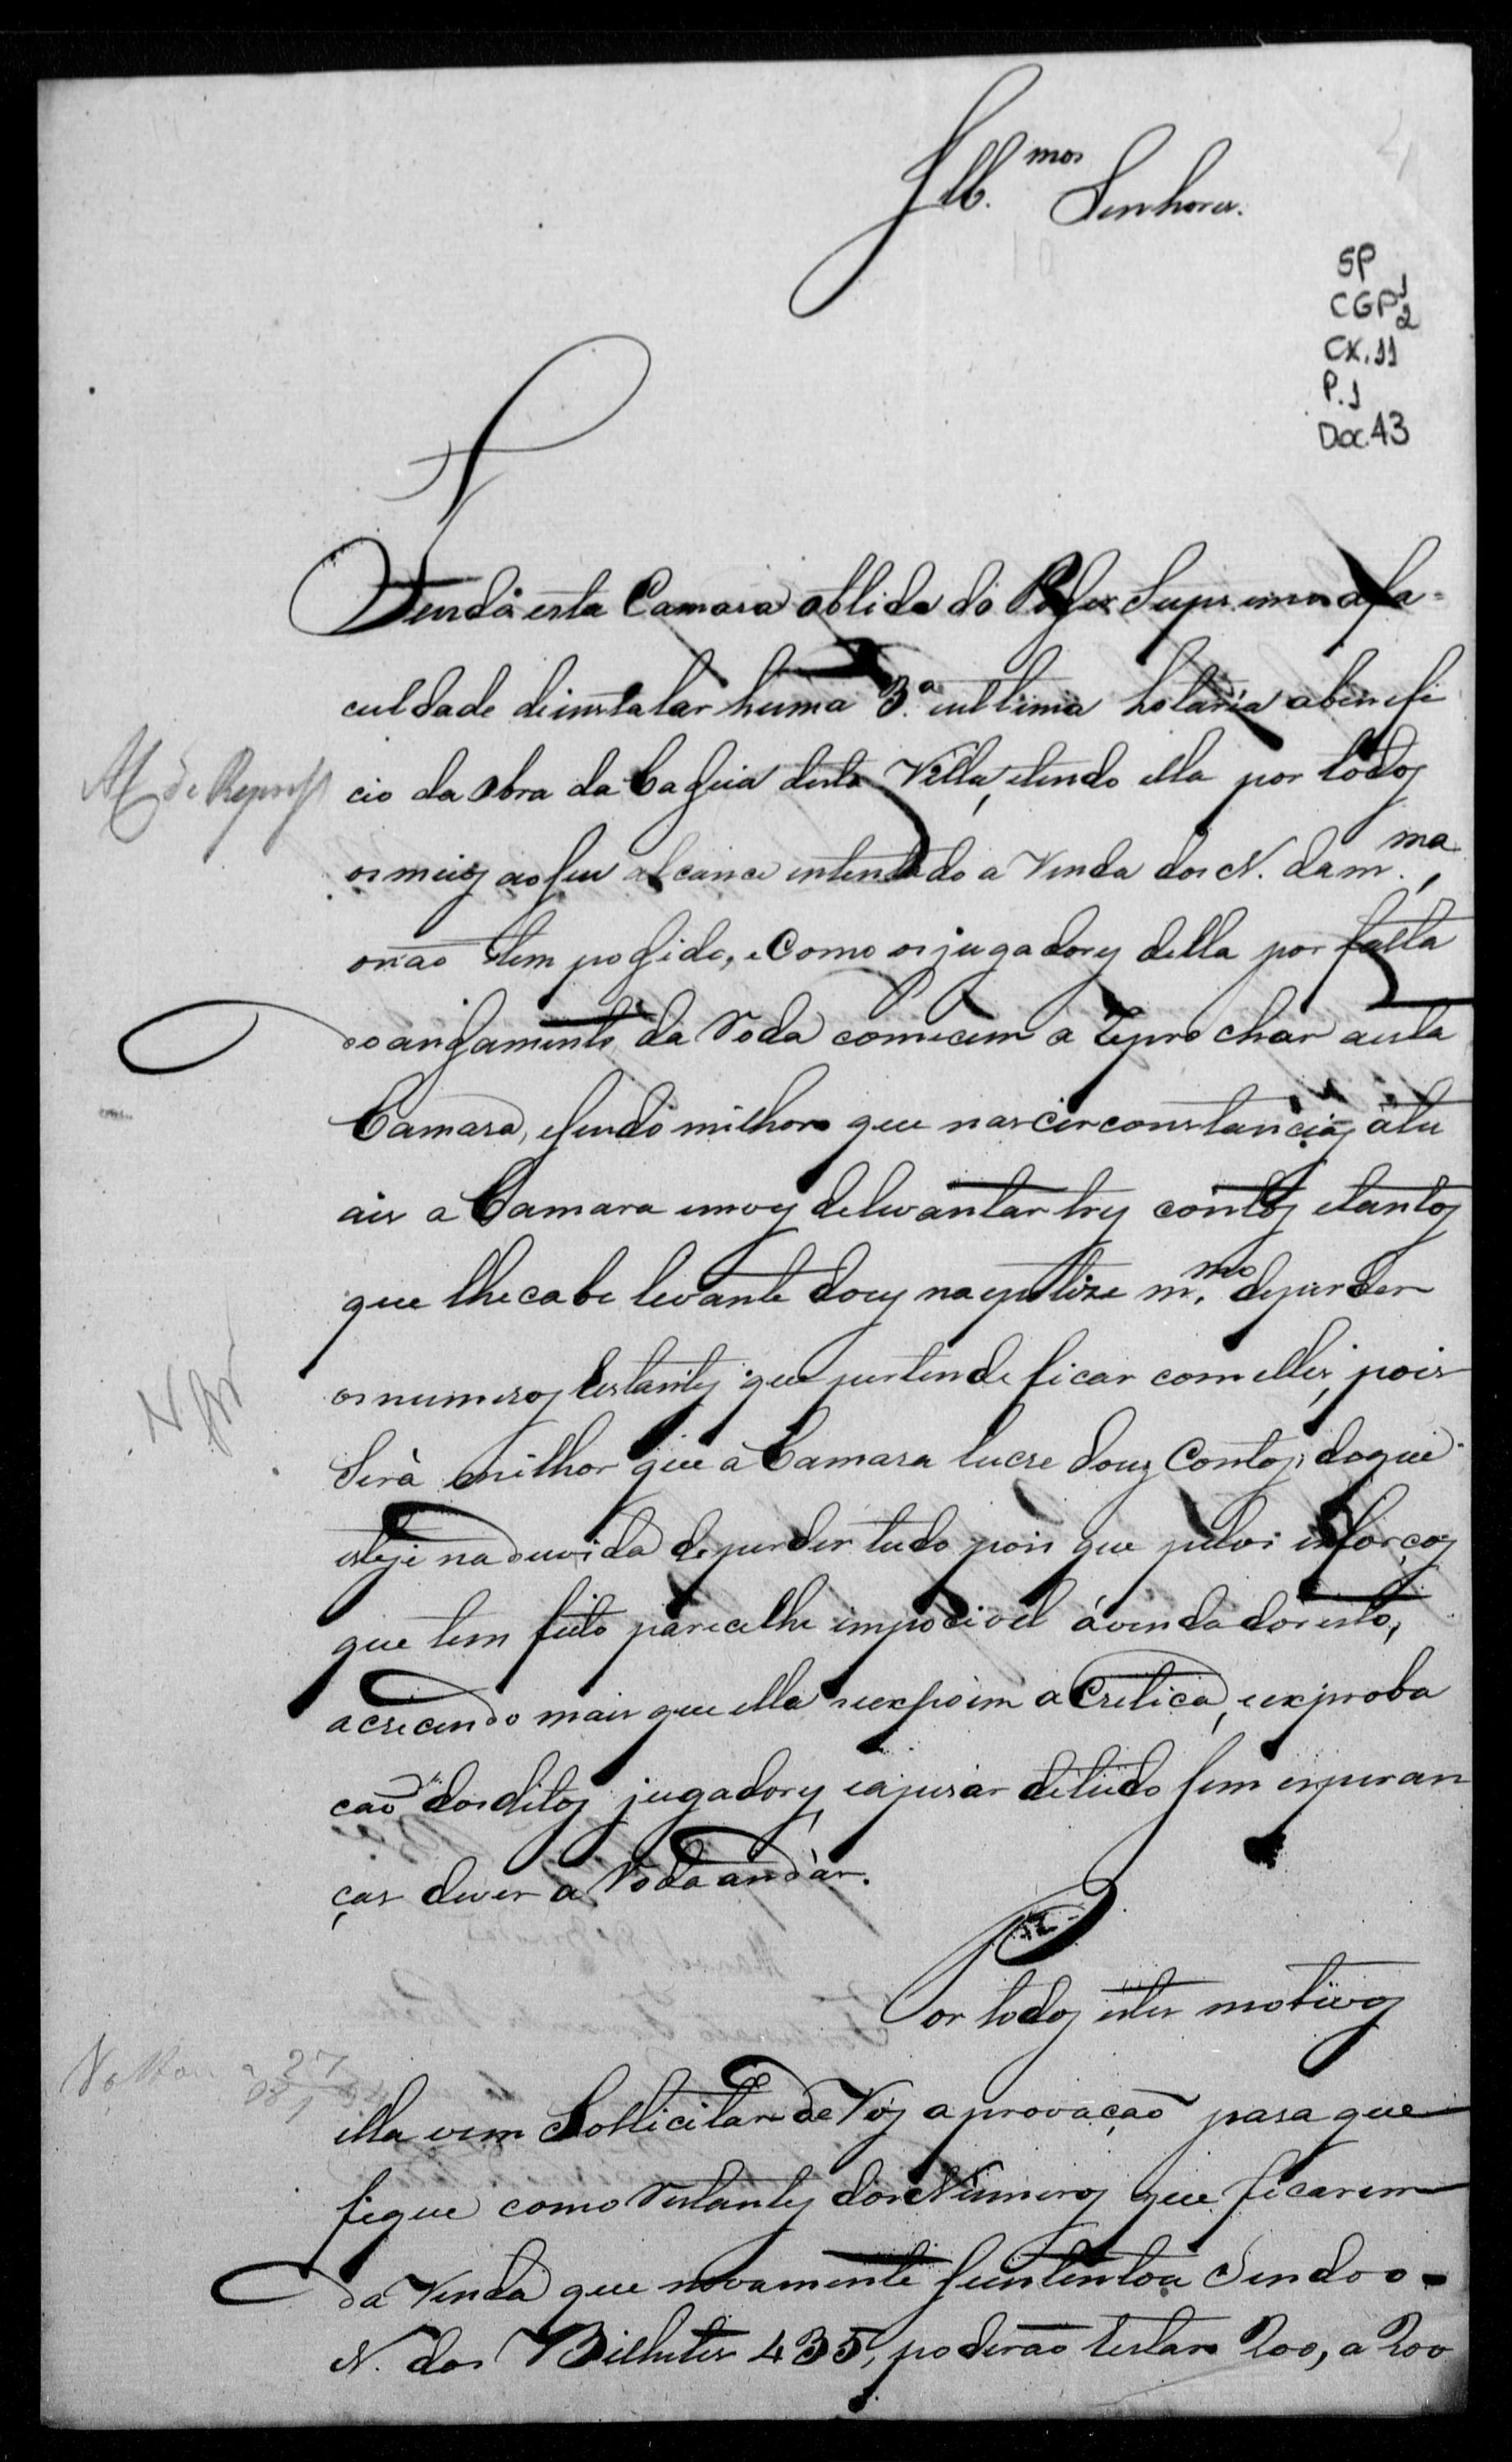 Ill.mos Senhores.
SP
CGP 1
2
CX. 11
P. 1
Doc. 43
Tendo esta Camara obtido do Poder Supremo afa-
culdade deinstalar huma 3.ª eultima Lotaria abenefi
cio da obra da Cadeia desta Villa, etendo ella por todos
osmeios aoseu alcance intentado a Venda dos N. dam.ma,
onaõ tem podido, eComo osjugadores della por falta
doandamento da Roda comecem a Reprochar aesta
Camara, esendo milhor que nascirconstancias atu
ais a Camara emves delevantar tres contos etantos
que lhecabe levante dous naepotize m.mo deperder
osnumeros Restantes que pertende ficar comelles, pois
Será milhor que a Camara lucre dous Contos, doque
esteje naduvida deperder tudo pois que pelos esforços
que tem feito parecelhe impocivel ávenda doresto,
acrecendo mais que ella seexpoim aCritica, eexproba
caõ dosditos jugadores, eapesar detudo sem esperan
ças dever a Roda andár.
Por todos estes motivos
ella vem Sollicitar de Vós aprovaçaõ para que
fique como Restantes dosNumeros que ficarem
da Venda que novamente seintentou Sendo o
N. dos Bilhetes 435, poderaõ Restar 200, a 200